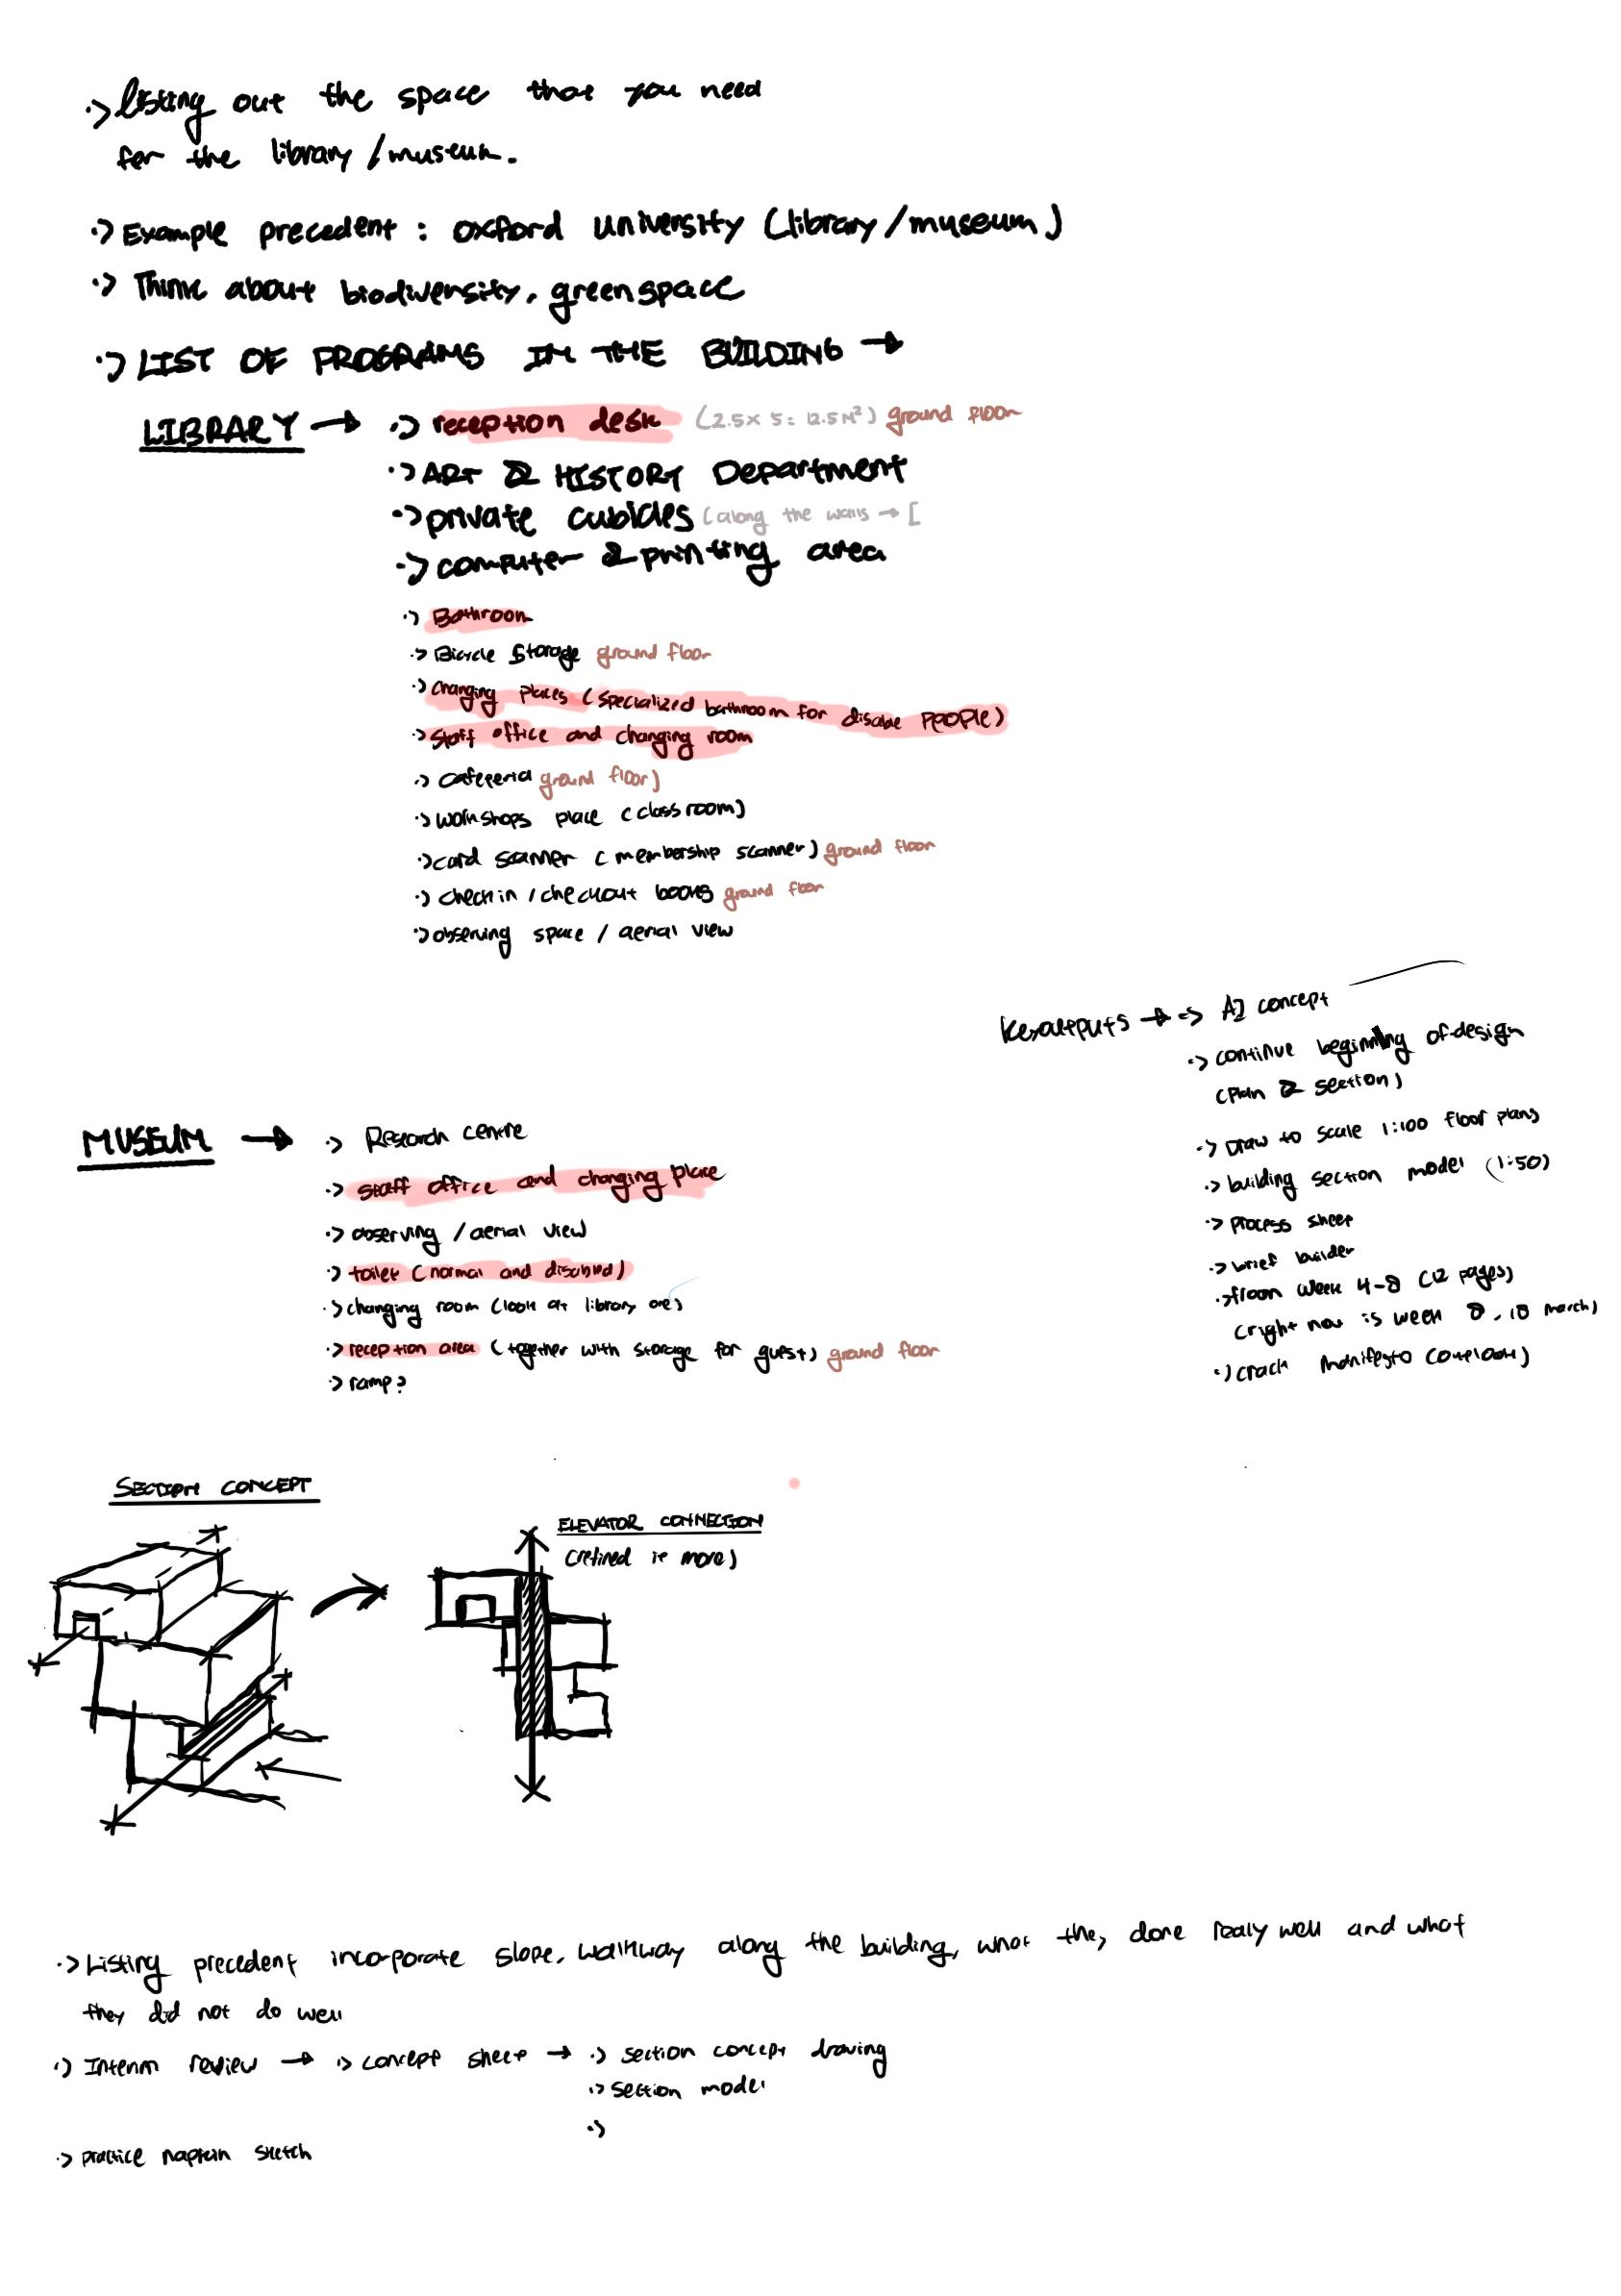 ·> Listing out the space that you need
for the library / museum.
·> Example precedent : oxford university (library / museum)
·> Think about biodiversity, green space
·> LIST OF PROGRAMS IN THE BUILDING →
LIBRARY → ·> reception desk (2.5 x 5 = 12.5 M²) ground floor
·> ART & HISTORY Department
·> private cubicles (along the walls → [
·> computer & printing area
·> Bathroom
·> Bicycle storage ground floor
·> changing places (specialized bathroom for disable people)
·> Staff office and changing room
·> cafeteria ground floor)
·> workshops place (classroom)
·> card scanner (membership scanner) ground floor
·> check in / checkout books ground floor
·> observing space / aerial view
Keyoutputs → ·> A2 concept
·> continue beginning of design
(Plan & section)
·> Draw to scale 1:100 floor plans
·> building section model (1:50)
·> process sheet
·> brief builder
·> from week 4-8 (12 pages)
(right now is week 8, 18 march)
·> crack manifesto
MUSEUM → ·> Research centre
·> staff office and changing place
·> observing / aerial view
·> toilet (normal and disabled)
·> changing room (look at library one)
·> reception area (together with storage for guest) ground floor
·> ramp?
SECTION CONCEPT
ELEVATOR CONNECTION
(refined it more)
·> Listing precedent incorporate slope, walkway along the building, what they done realy well and what
they did not do well
·> Interim review → ·> concept sheet → ·> section concept drawing
·> section model
·>
·> practice napkin sketch